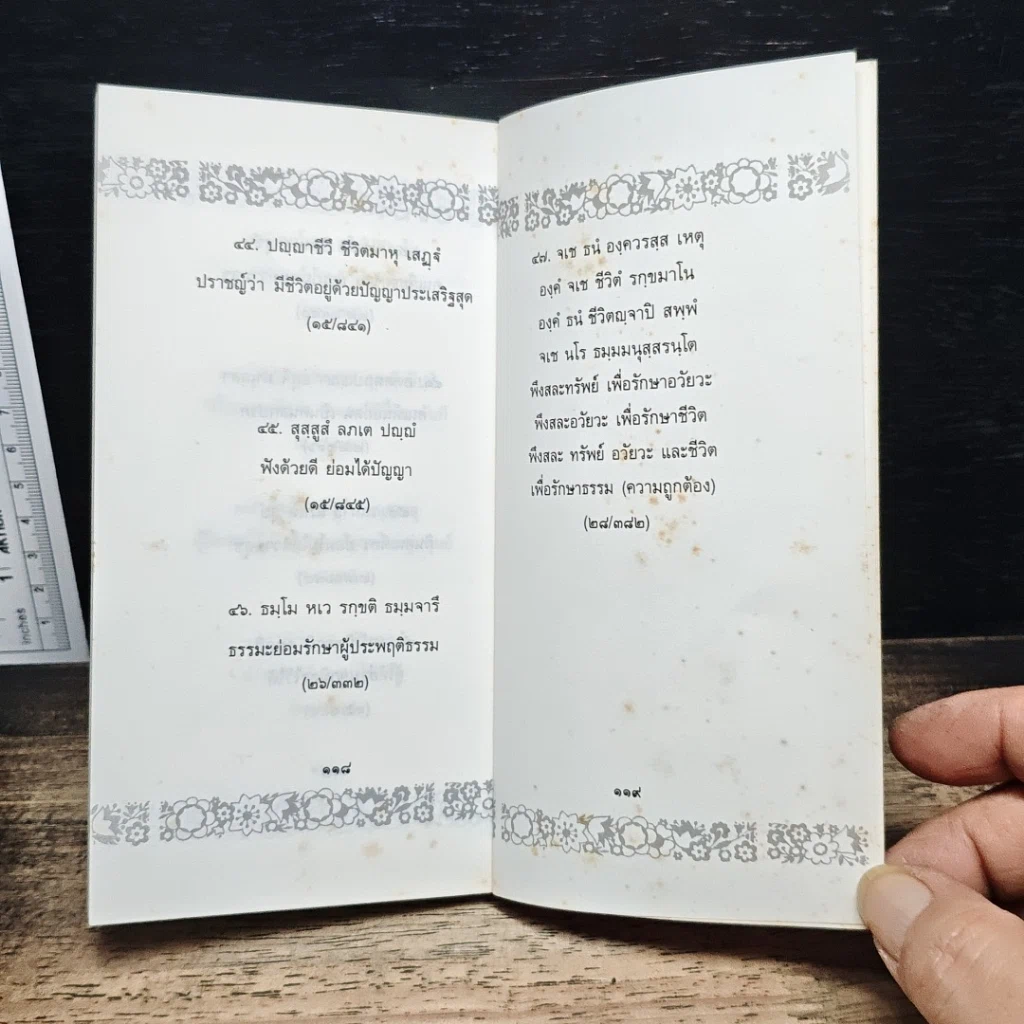 ๔๔. ปญฺญาชีวึ ชีวิตมาหุ เสฏฺฐํ
ปราชญ์ว่า มีชีวิตอยู่ด้วยปัญญาประเสริฐสุด
(๑๕/๘๔๑)
๔๕. สุสฺสูสํ ลภเต ปญฺญํ
ฟังด้วยดี ย่อมได้ปัญญา
(๑๕/๘๔๕)
๔๖. ธมฺโม หเว รกฺขติ ธมฺมจารึ
ธรรมะย่อมรักษาผู้ประพฤติธรรม
(๒๖/๓๓๒)
๑๑๘
๔๗. จเช ธนํ องฺควรสฺส เหตุ
องฺคํ จเช ชีวิตํ รกฺขมาโน
องฺคํ ธนํ ชีวิตญฺจาปิ สพฺพํ
จเช นโร ธมฺมมนุสฺสรนฺโต
พึงสละทรัพย์ เพื่อรักษาอวัยวะ
พึงสละอวัยวะ เพื่อรักษาชีวิต
พึงสละ ทรัพย์ อวัยวะ และชีวิต
เพื่อรักษาธรรม (ความถูกต้อง)
(๒๘/๓๘๒)
๑๑๙
inches
1
2
3
4
5
6
7